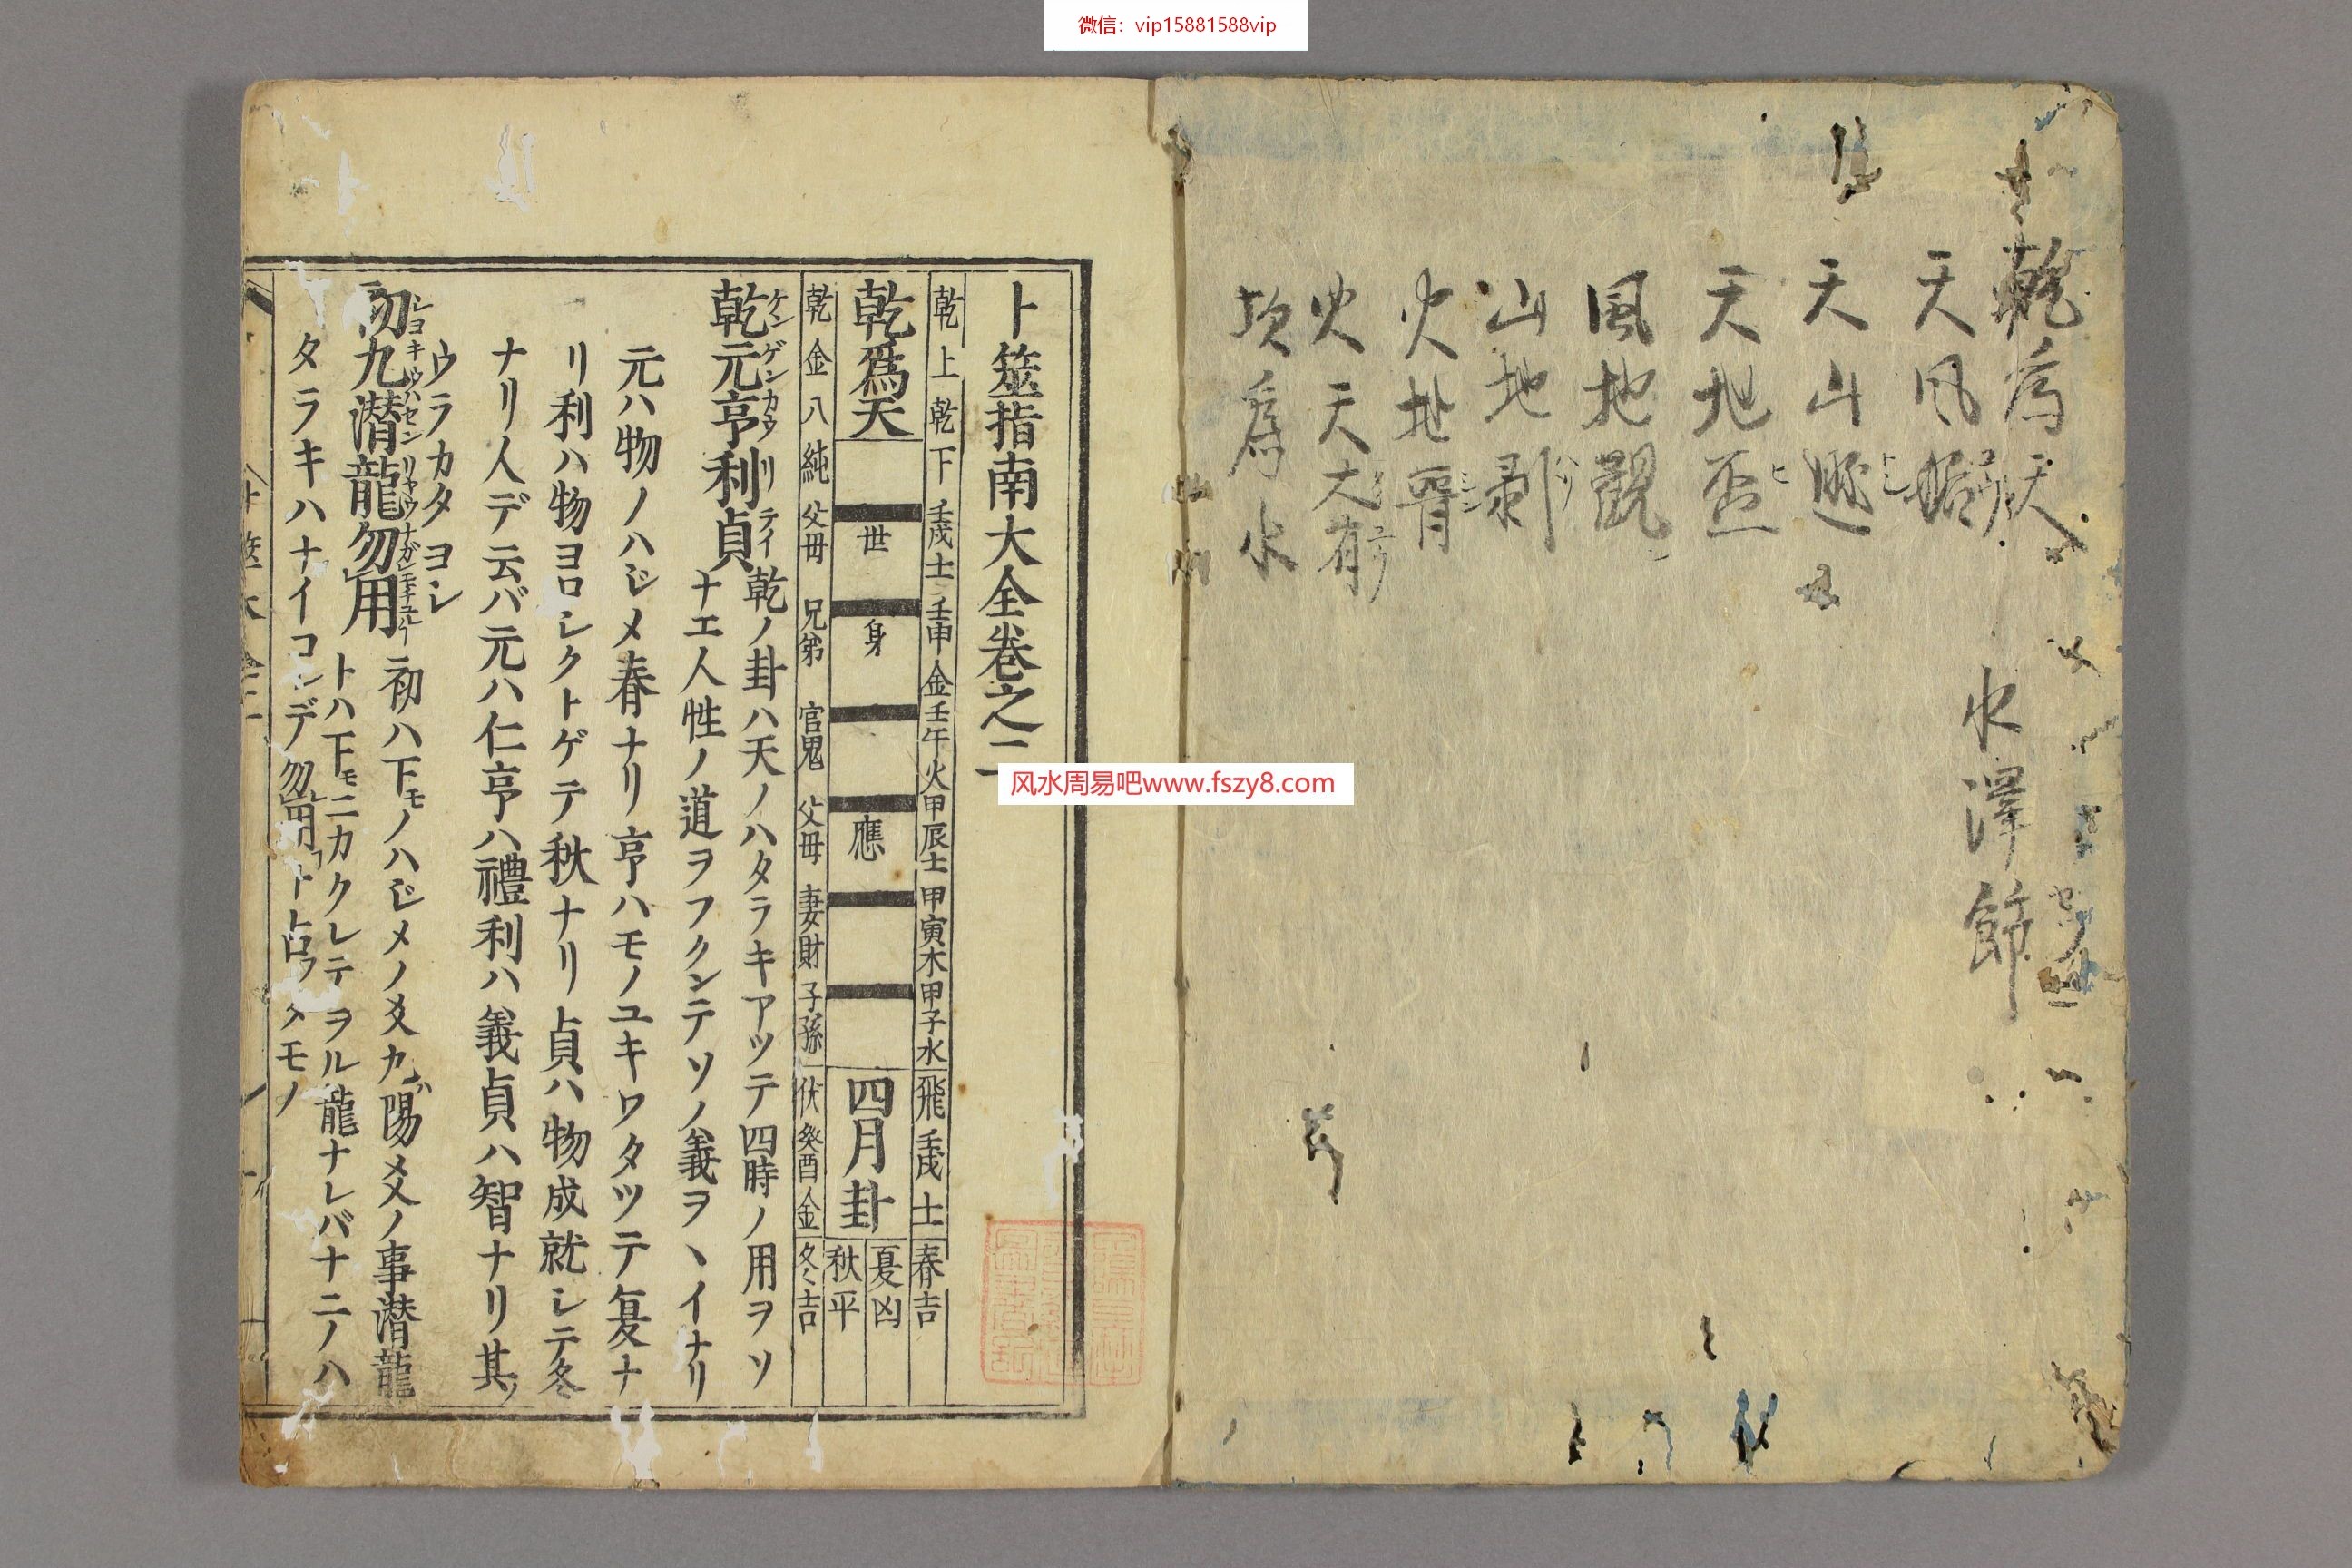 微信：vip15881588vip
乾為天
天風姤
天山遯
天地否
風地觀
山地剥
火地晋
火天大有
坎為水
水澤節
风水周易吧www.fszy8.com
卜筮指南大全卷之二
乾上乾下 壬戌土 壬申金 壬午火 甲辰土 甲寅木 甲子水 飛壬戌土 春吉
乾爲天 世 身 應 四月卦 夏凶 秋平
乾金八純 父母 兄弟 官鬼 父母 妻財 子孫 伏癸酉金 冬吉
乾元亨利貞 乾ノ卦ハ天ノハタラキアツテ四時ノ用ヲソ
ナエ人性ノ道ヲフクンテソノ義ヲヽイナリ
元ハ物ノハジメ春ナリ亨ハモノユキワタツテ夏ナ
リ利ハ物ヨロシクトゲテ秋ナリ貞ハ物成就シテ冬
ナリ人デ云バ元ハ仁亨ハ禮利ハ義貞ハ智ナリ其
ウラカタヨシ
初九潜龍勿用 初ハ下モノハジメノ爻九ハ陽爻ノ事潜龍
トハ下モニカクレテヲル龍ナレバナニノハ
タラキハナイコンデ勿用ト占フタモノ